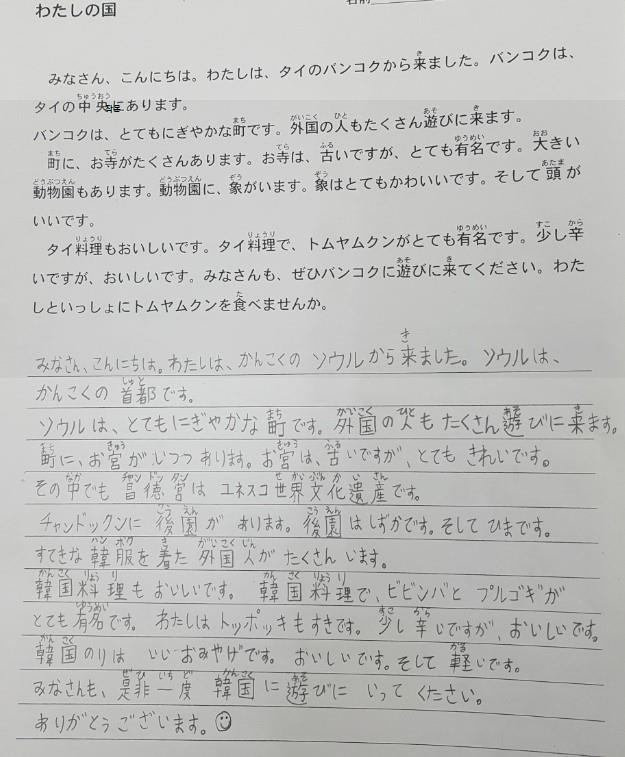 わたしの国
みなさん、こんにちは。わたしは、タイのバンコクから来ました。バンコクは、
タイの中央にあります。
バンコクは、とてもにぎやかな町です。外国の人もたくさん遊びに来ます。
町に、お寺がたくさんあります。お寺は、古いですが、とても有名です。大きい
動物園もあります。動物園に、象がいます。象はとてもかわいいです。そして頭が
いいです。
タイ料理もおいしいです。タイ料理で、トムヤムクンがとても有名です。少し辛
いですが、おいしいです。みなさんも、ぜひバンコクに遊びに来てください。わた
しといっしょにトムヤムクンを食べませんか。
みなさん、こんにちは。わたしは、かんこくの ソウルから来ました。ソウルは、
かんこくの 首都です。
ソウルは、とてもにぎやかな 町です。外国の人も たくさん 遊びに来ます。
町に、お宮が いつつ あります。お宮は、古いですが、とても きれいです。
その中でも 昌徳宮は ユネスコ世界文化遺産です。
チャンドックンに 後園が あります。後園は しずかです。そして ひまです。
すてきな 韓服を着た 外国人が たくさん います。
韓国料理も おいしいです。 韓国料理で、ビビンバと プルゴギが
とても有名です。 わたしは トッポッキもすきです。 少し辛いですが、おいしいです。
韓国のりは いい おみやげです。 おいしいです。そして 軽いです。
みなさんも、是非一度 韓国に 遊びに いって ください。
ありがとうございます。